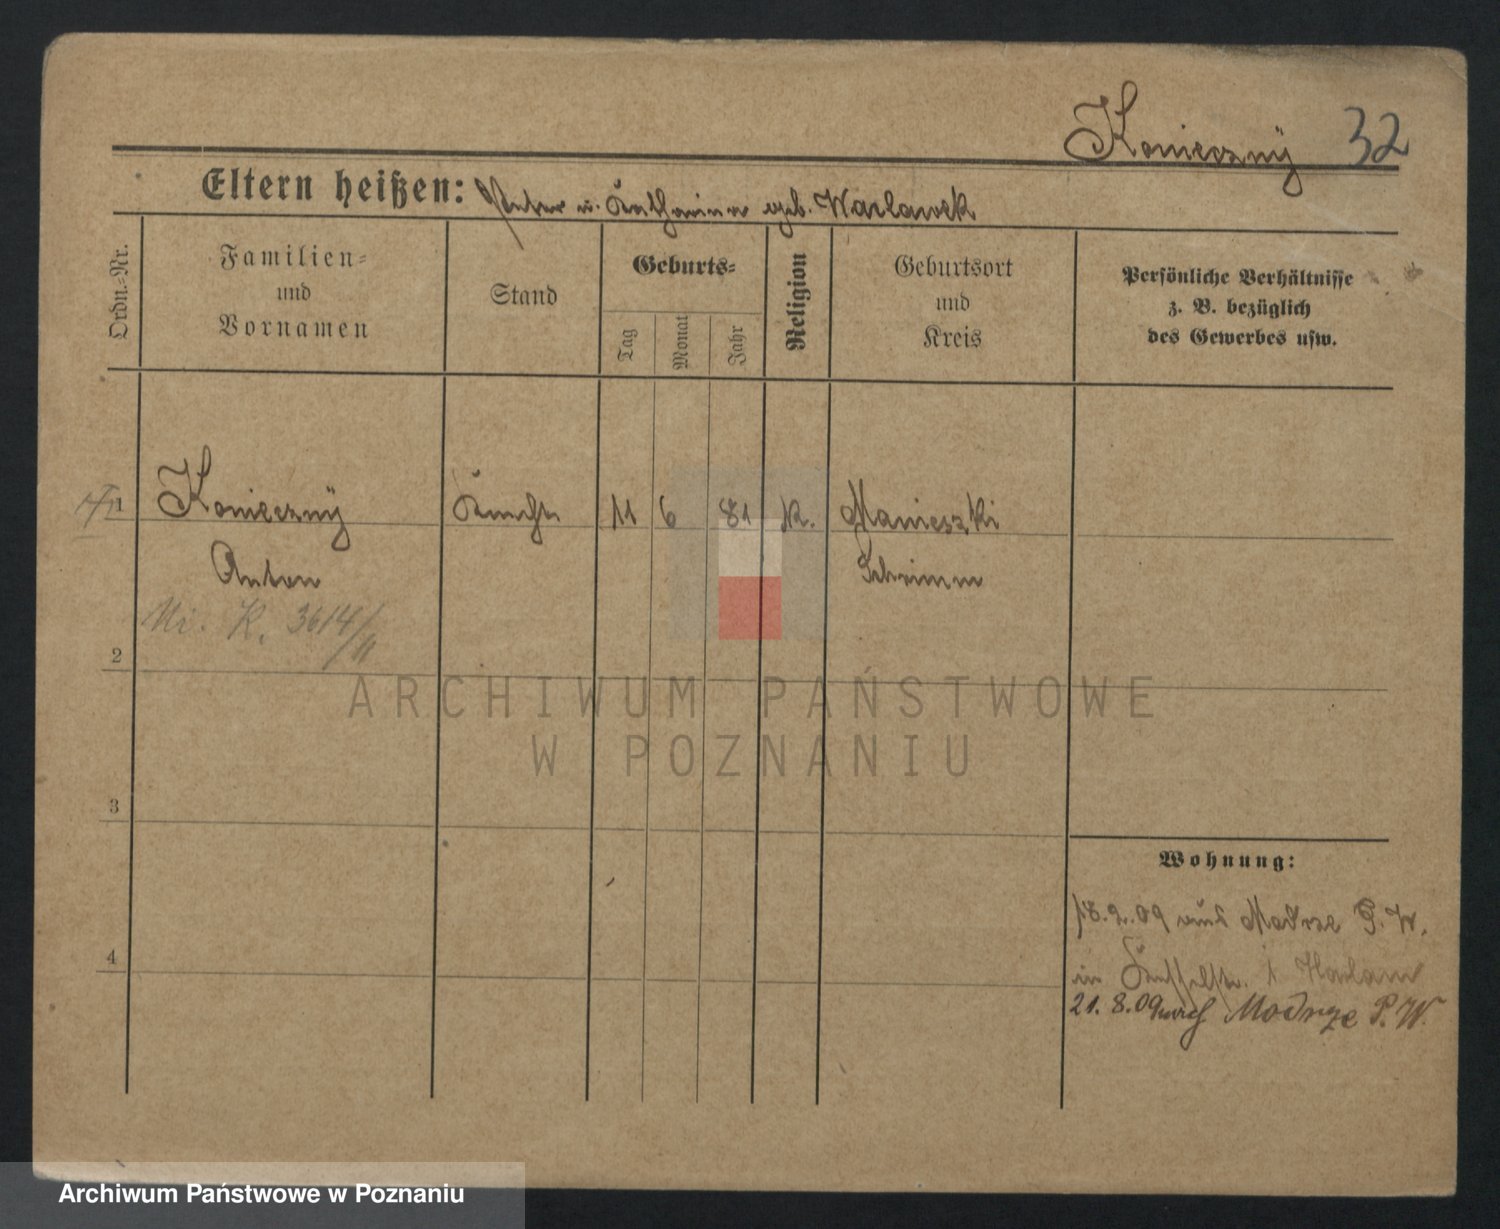 Konieczny 32
Eltern heißen: Peter u. Katharina geb. Waclawek
Ordn.-Nr.
Familien-
und
Vornamen
Stand
Geburts-
Tag
Monat
Jahr
Religion
Geburtsort
und
Kreis
Persönliche Verhältnisse
z. B. bezüglich
des Gewerbes usw.
1 Konieczny Knecht 11 6 81 k. Manieczki
Anton Schrimm
K. 3614/11
2
3
4
Wohnung:
18.2.09 Modrze P. W.
in
21. 8. 09 nach Modrze P. W.
ARCHIWUM PAŃSTWOWE
W POZNANIU
Archiwum Państwowe w Poznaniu